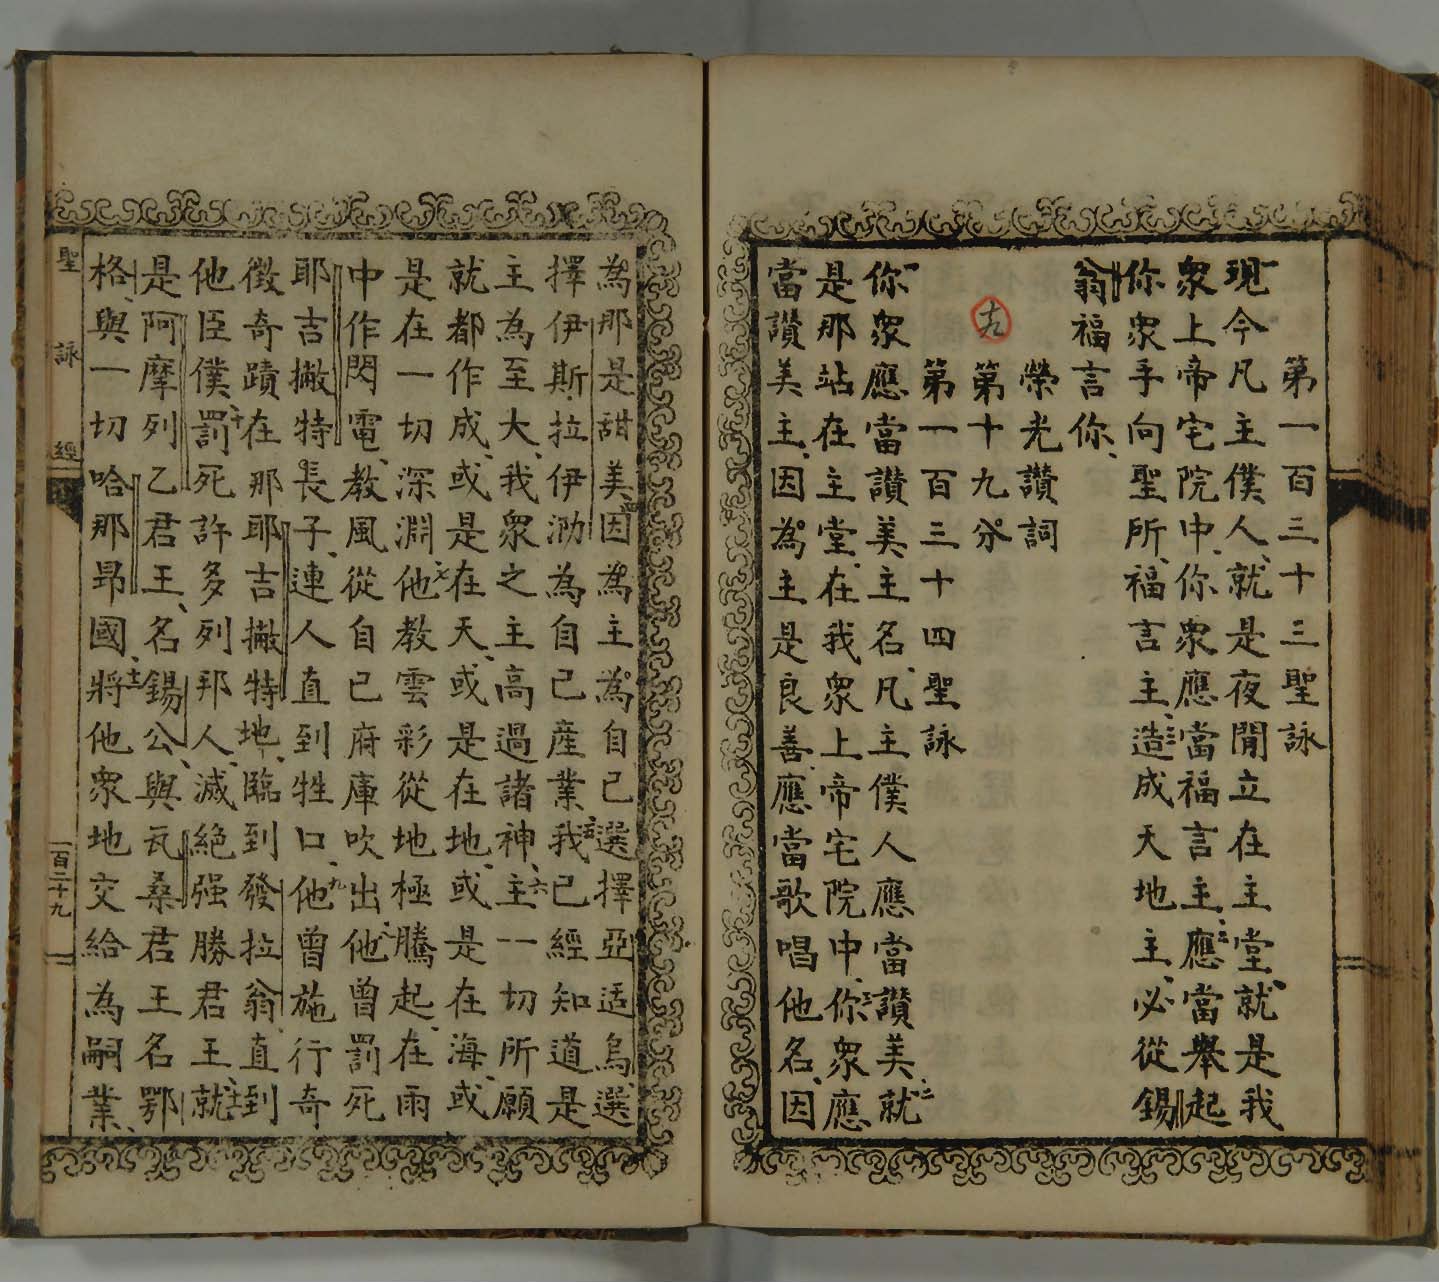 第一百三十三聖詠
現今凡主僕人、就是夜閒立在主堂、就是我
衆上帝宅院中、你衆應當福言主、二應當舉起
你衆手向聖所、福言主、三造成天地主、必從錫
翁福言你、
榮光讚詞
第十九分
九
第一百三十四聖詠
你衆應當讚美主名、凡主僕人應當讚美、二就
是那站在主堂、在我衆上帝宅院中、三你衆應
當讚美主、因為主是良善、應當歌唱他名、因
為那是甜美、四因為主為自己選擇亞适烏、選
擇伊斯拉伊泐為自己産業、五我已經知道是
主為至大、我衆之主高過諸神、六主一切所願
就都作成、或是在天、或是在地、或是在海、或
是在一切深淵、七他教雲彩從地極騰起、在雨
中作閃電、教風從自己府庫吹出、八他曾罰死
耶吉撇特長子、連人直到牲口、九他曾施行奇
徵奇蹟在那耶吉撇特地、臨到發拉翁直到
他臣僕、十罰死許多列邦人、滅絶强勝君王、十一就
是阿摩列乙君王、名錫公、與瓦桑君王名鄂
格、與一切哈那昂國、十二將他衆地交給為嗣業、
聖詠經
一百二十九